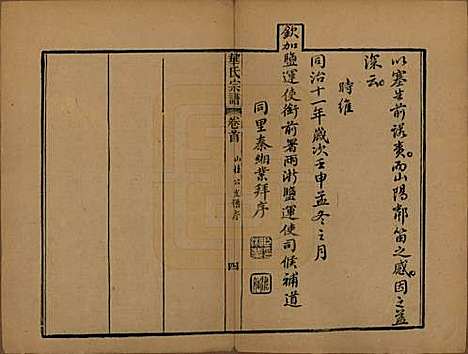 以塞生前諾責而山陽鄰笛之感因之益
深云
時維
同治十一年歲次壬申孟冬之月
欽加鹽運使銜前署兩浙鹽運使司候補道
同里秦緗業拜序
華氏宗譜
卷首
山桂公支譜序
四